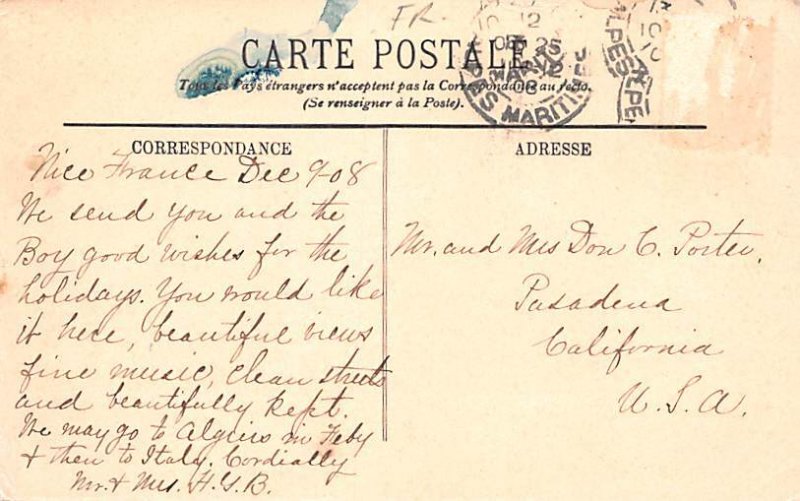 FR.
CARTE POSTALE
Tous les Pays étrangers n'acceptent pas la Correspondance au recto.
(Se renseigner à la Poste).
ALPES MARITIMES
CORRESPONDANCE
ADRESSE
Nice France Dec 9-08
We send you and the
Boy good wishes for the
holidays. You would like
it here, beautiful views
fine music, clean streets
and beautifully kept.
We may go to Algiers in Feby
+ then to Italy. Cordially
Mr. + Mrs. H.G.B.
Mr. and Mrs Don C. Porter,
Pasadena
California
U.S.A.